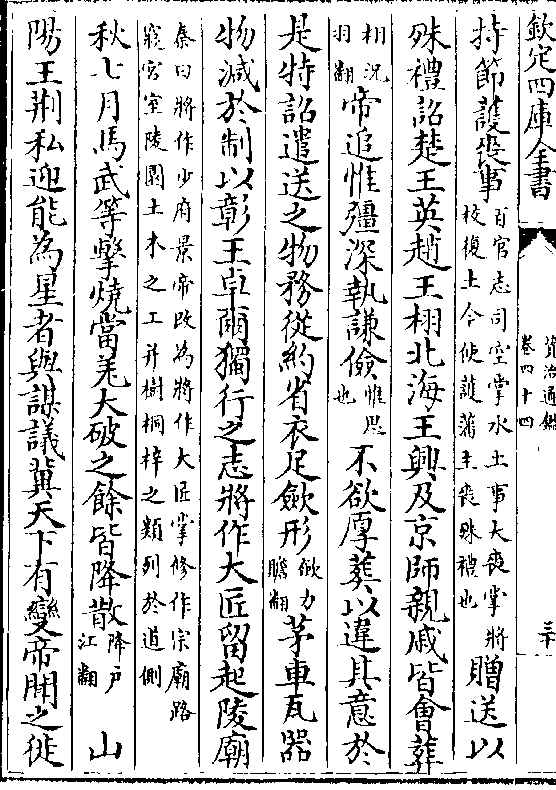 欽定四庫全書
資治通鑑
卷四十四
三十
持節護喪事百官志司空掌水土事大喪掌將校復土今使護藩王喪殊禮也贈送以
殊禮詔楚王英趙王栩北海王興及京師親戚皆會葬
栩況羽翻帝追惟彊深執謙儉惟思也不欲厚葬以違其意於
是特詔遣送之物務從約省衣足斂形斂力贍翻茅車瓦器
物減於制以彰王卓爾獨行之志將作大匠留起陵廟
秦曰將作少府景帝改為將作大匠掌修作宗廟路
寢宮室陵園土木之工并樹桐梓之類列於道側
秋七月馬武等擊燒當羌大破之餘皆降散降户江翻山
陽王荆私迎能為星者與謀議冀天下有變帝聞之徙